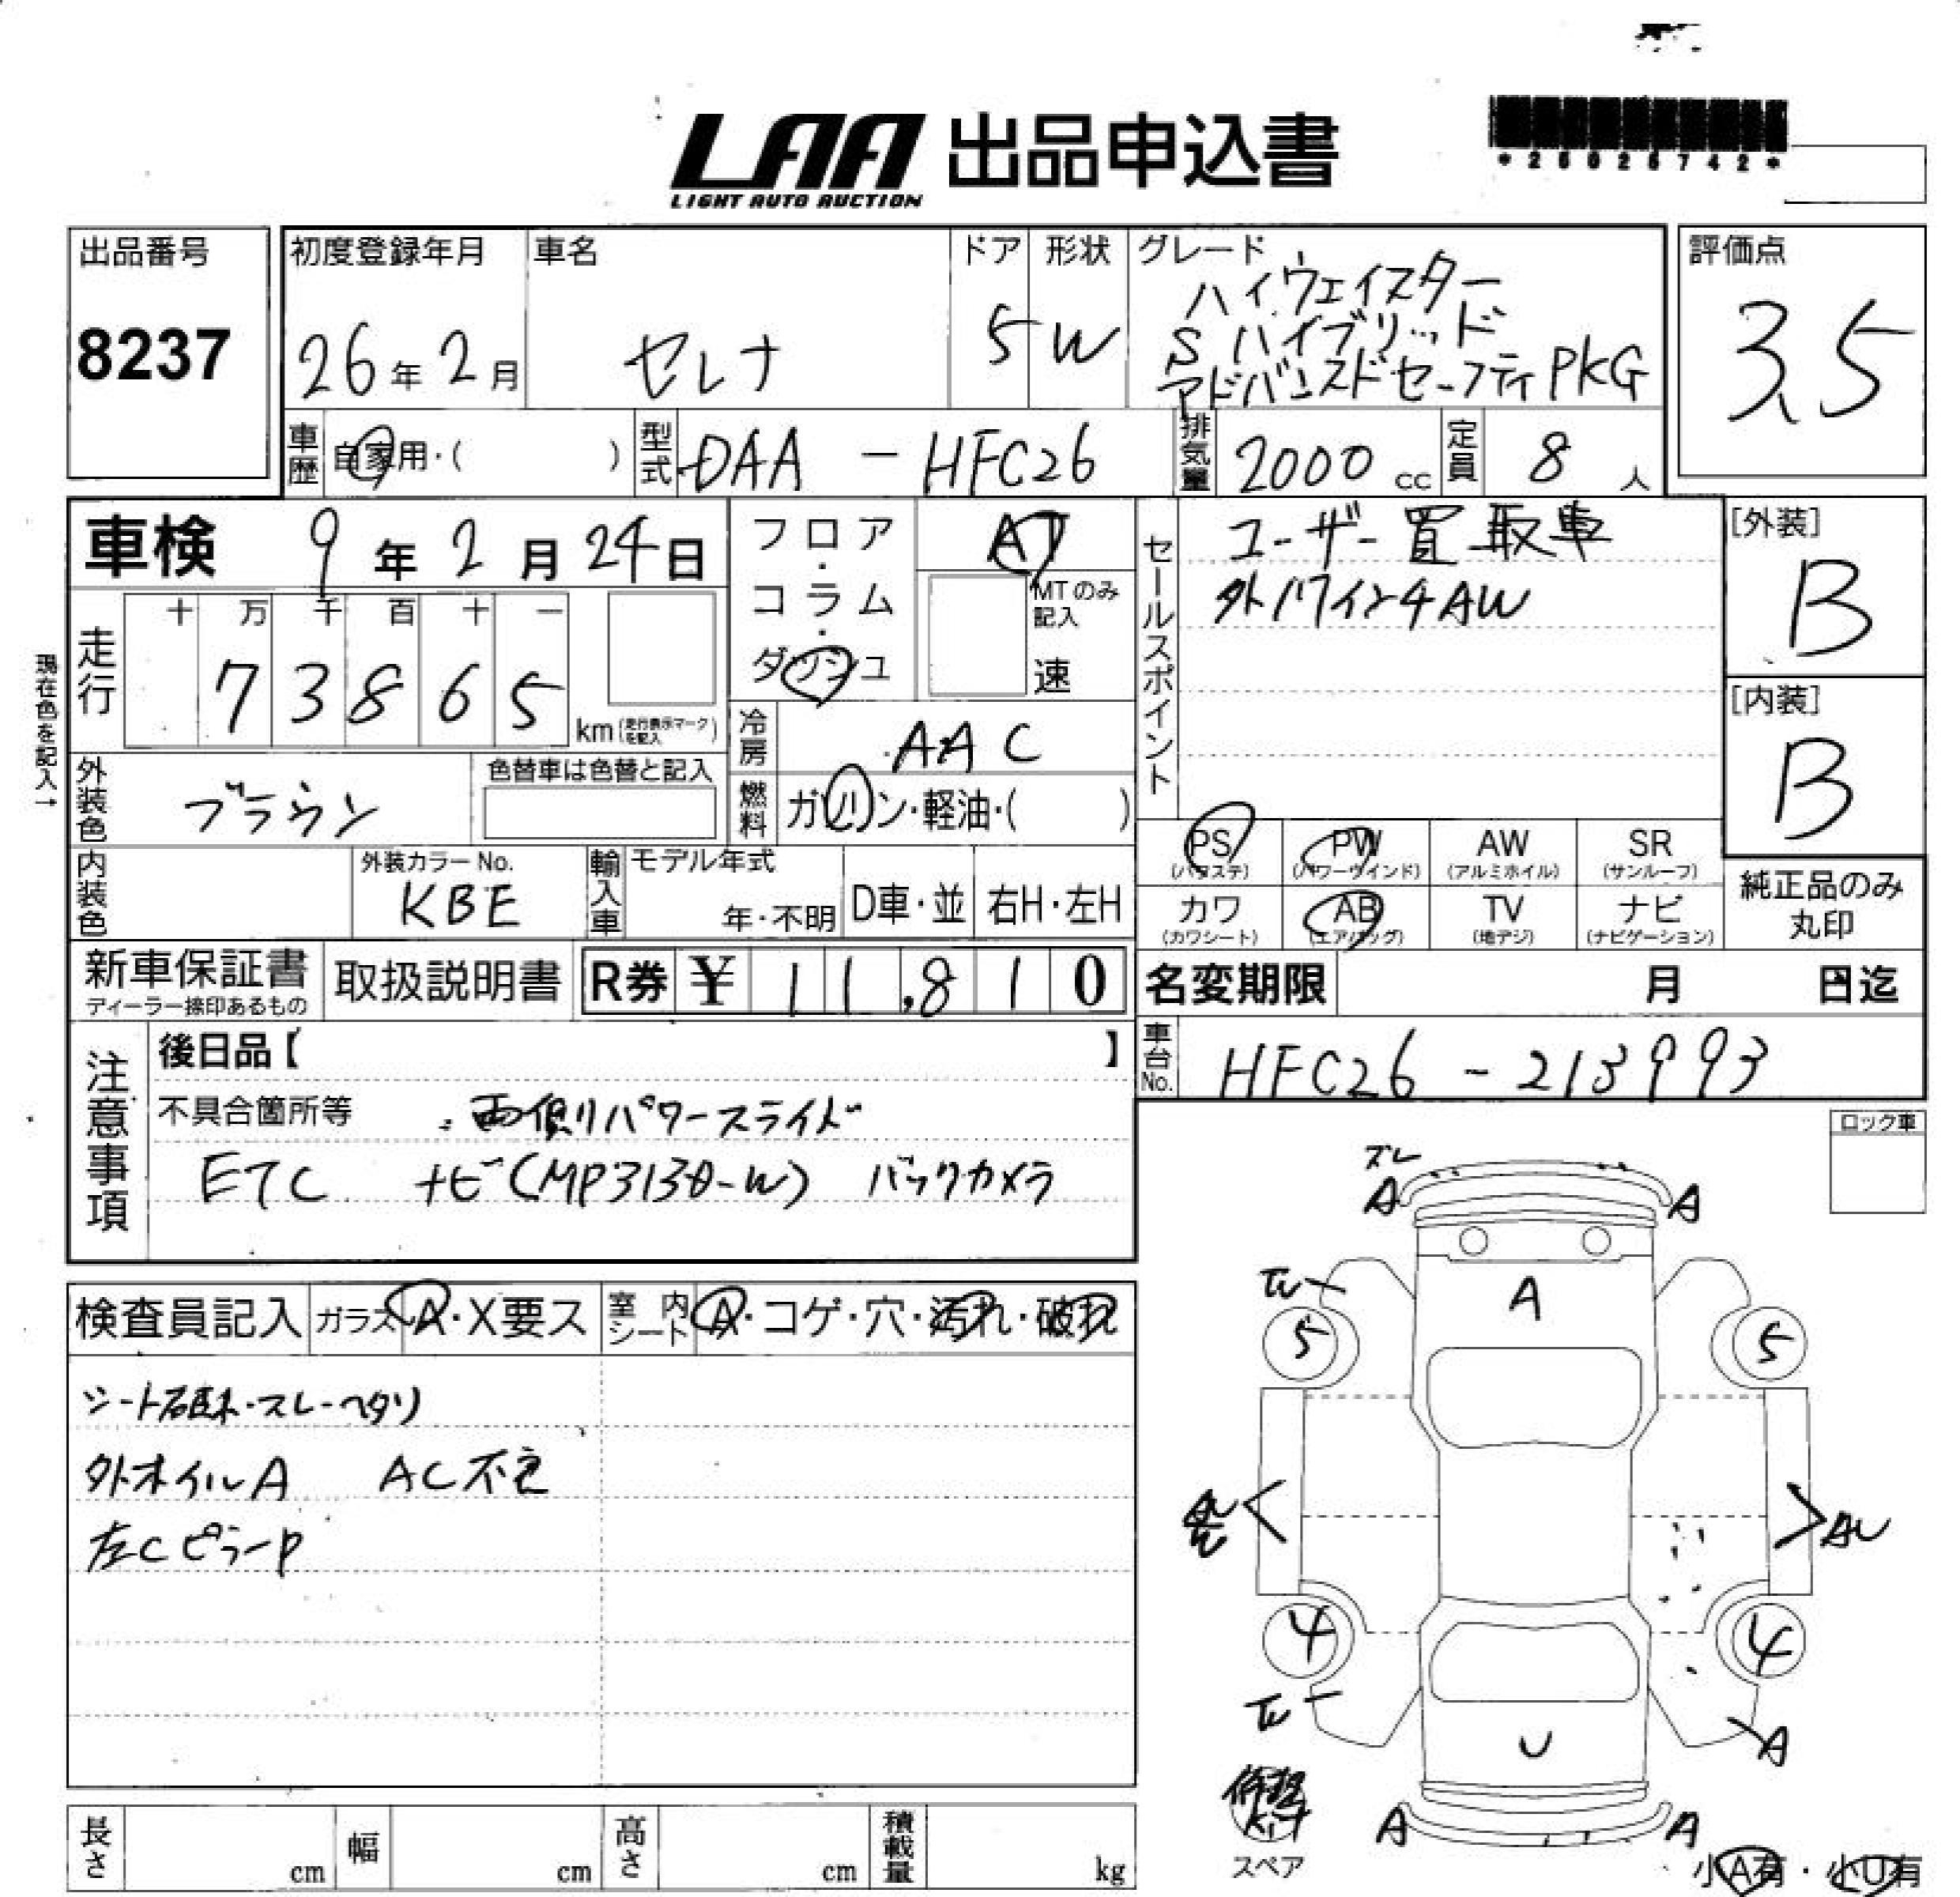 LAA 出品申込書
LIGHT AUTO AUCTION
*26026742*
出品番号
8237
初度登録年月
26年2月
車名
セレナ
ドア
5
形状
W
グレード
ハイウェイスター
Sハイブリッド
アドバンスドセーフティPKG
評価点
3.5
車歴
自家用・( )
型式
DAA-HFC26
排気量
2000cc
定員
8人
車検 9年2月24日
フロア・コラム・ダッシュ
AT
MTのみ記入
速
セールスポイント
ユーザー買取車
外17インチAW
[外装]
B
[内装]
B
現在色を記入→
走行
十万千百十一
73865
km(走行表示マークを記入)
冷房
AAC
燃料
ガソリン・軽油・( )
外装色
ブラウン
色替車は色替と記入
内装色
外装カラーNo.
KBE
輸入車
モデル年式
年・不明
D車・並
右H・左H
PS
(パワステ)
PW
(パワーウインド)
AW
(アルミホイル)
SR
(サンルーフ)
カワ
(カワシート)
AB
(エアバッグ)
TV
(地デジ)
ナビ
(ナビゲーション)
純正品のみ
丸印
新車保証書
ディーラー捺印あるもの
取扱説明書
R券 ¥11,810
名変期限 月 日迄
車台No.
HFC26-213993
注意事項
後日品【 】
不具合箇所等 両側パワースライド
ETC ナビ(MP313D-W) バックカメラ
ロック車
検査員記入
ガラス A・X要ス
室内シート A・コゲ・穴・汚れ・破れ
シート破れ・スレ・ヘタリ
外ホイルA AC不良
左CピラーP
ズレ
A
A
A
5
5
AU
4
4
U
A
A
A
スペア
小A有・小U有
長さ cm
幅 cm
高さ cm
積載量 kg